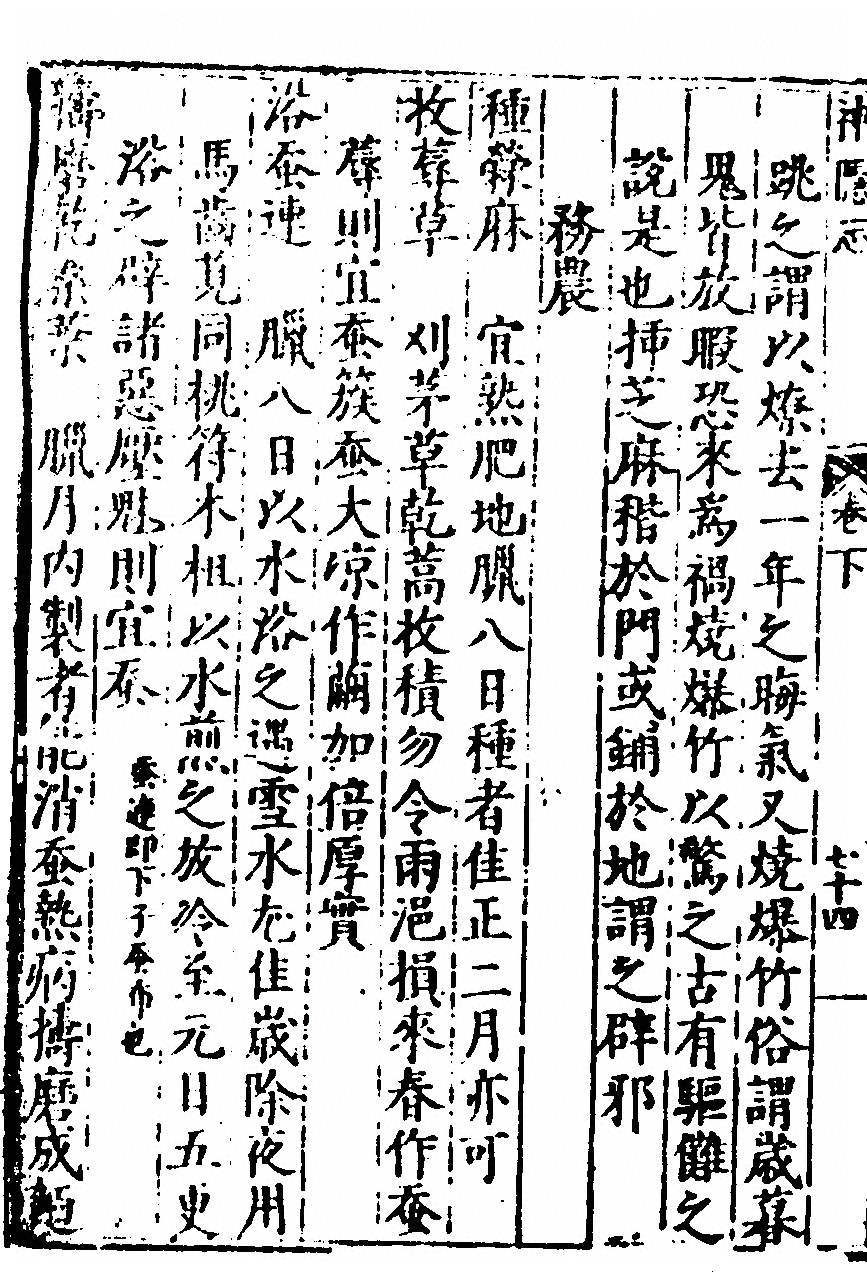 神隱志 卷下 七十四
跳之謂以燎去一年之晦氣又燒爆竹俗謂歲暮
鬼皆放暇恐來爲禍燒爆竹以驚之古有驅儺之
說是也揷芝麻稭於門或鋪於地謂之辟邪
務農
種檾麻 宜熟肥地臘八日種者佳正二月亦可
收蓐草 刈茅草乾蒿收積勿令雨浥損來春作蚕
蓐則宜蚕簇蚕大凉作繭加倍厚實
浴蚕連 臘八日以水浴之遇雪水尤佳歲除夜用
馬齒莧同桃符木柤以水煎之放冷至元日五更
浴之辟諸惡壓魅則宜蚕 蚕連即下子蚕布也
擣磨乾桑葉 臘月内製者能消蚕熱病擣磨成麵